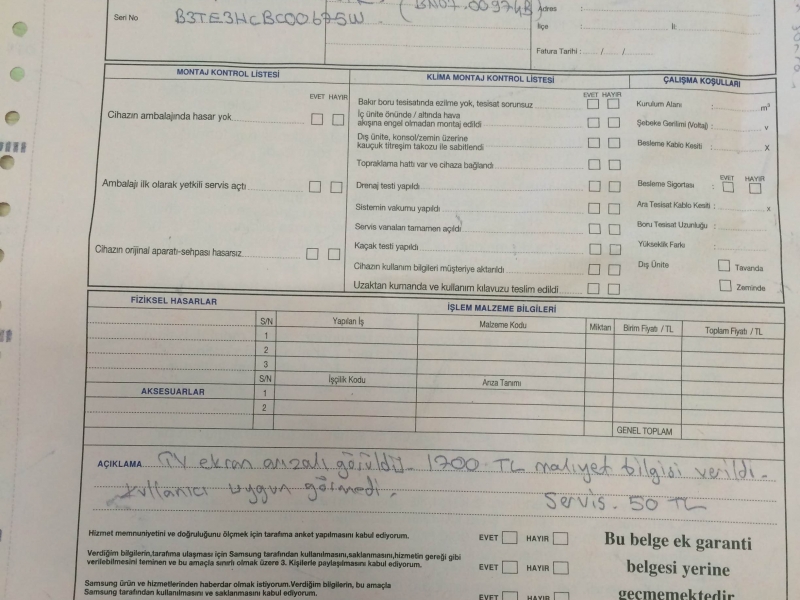 Seri No B3TE3HCBC00675W (BN07-00974B)
Adres :
İlçe : İl:
Fatura Tarihi : / /
MONTAJ KONTROL LİSTESİ
EVET HAYIR
Cihazın ambalajında hasar yok
Ambalajı ilk olarak yetkili servis açtı
Cihazın orijinal aparatı-sehpası hasarsız
KLİMA MONTAJ KONTROL LİSTESİ
EVET HAYIR
Bakır boru tesisatında ezilme yok, tesisat sorunsuz
İç ünite önünde / altında hava
akışına engel olmadan montaj edildi
Dış ünite, konsol/zemin üzerine
kauçuk titreşim takozu ile sabitlendi
Topraklama hattı var ve cihaza bağlandı
Drenaj testi yapıldı
Sistemin vakumu yapıldı
Servis vanaları tamamen açıldı
Kaçak testi yapıldı
Cihazın kullanım bilgileri müşteriye aktarıldı
Uzaktan kumanda ve kullanım kılavuzu teslim edildi
ÇALIŞMA KOŞULLARI
Kurulum Alanı : m³
Şebeke Gerilimi (Voltaj) : v
Besleme Kablo Kesiti : x
EVET HAYIR
Besleme Sigortası :
Ara Tesisat Kablo Kesiti : x
Boru Tesisat Uzunluğu :
Yükseklik Farkı :
Dış Ünite Tavanda
Zeminde
FİZİKSEL HASARLAR
İŞLEM MALZEME BİLGİLERİ
S/N Yapılan İş Malzeme Kodu Miktarı Birim Fiyatı / TL Toplam Fiyatı / TL
1
2
3
AKSESUARLAR
S/N İşçilik Kodu Arıza Tanımı
1
2
GENEL TOPLAM
AÇIKLAMA TV ekran arızalı görüldü. 1700 TL maliyet bilgisi verildi.
kullanıcı uygun görmedi. Servis. 50 TL
Hizmet memnuniyetini ve doğruluğunu ölçmek için tarafıma anket yapılmasını kabul ediyorum. EVET HAYIR
Verdiğim bilgilerin,tarafıma ulaşması için Samsung tarafından kullanılmasını,saklanmasını,hizmetin gereği gibi
verilebilmesini teminen ve bu amaçla sınırlı olmak üzere 3. Kişilerle paylaşılmasını kabul ediyorum. EVET HAYIR
Samsung ürün ve hizmetlerinden haberdar olmak istiyorum.Verdiğim bilgilerin, bu amaçla
Samsung tarafından kullanılmasını ve saklanmasını kabul ediyorum. EVET HAYIR
Bu belge ek garanti
belgesi yerine
geçmemektedir